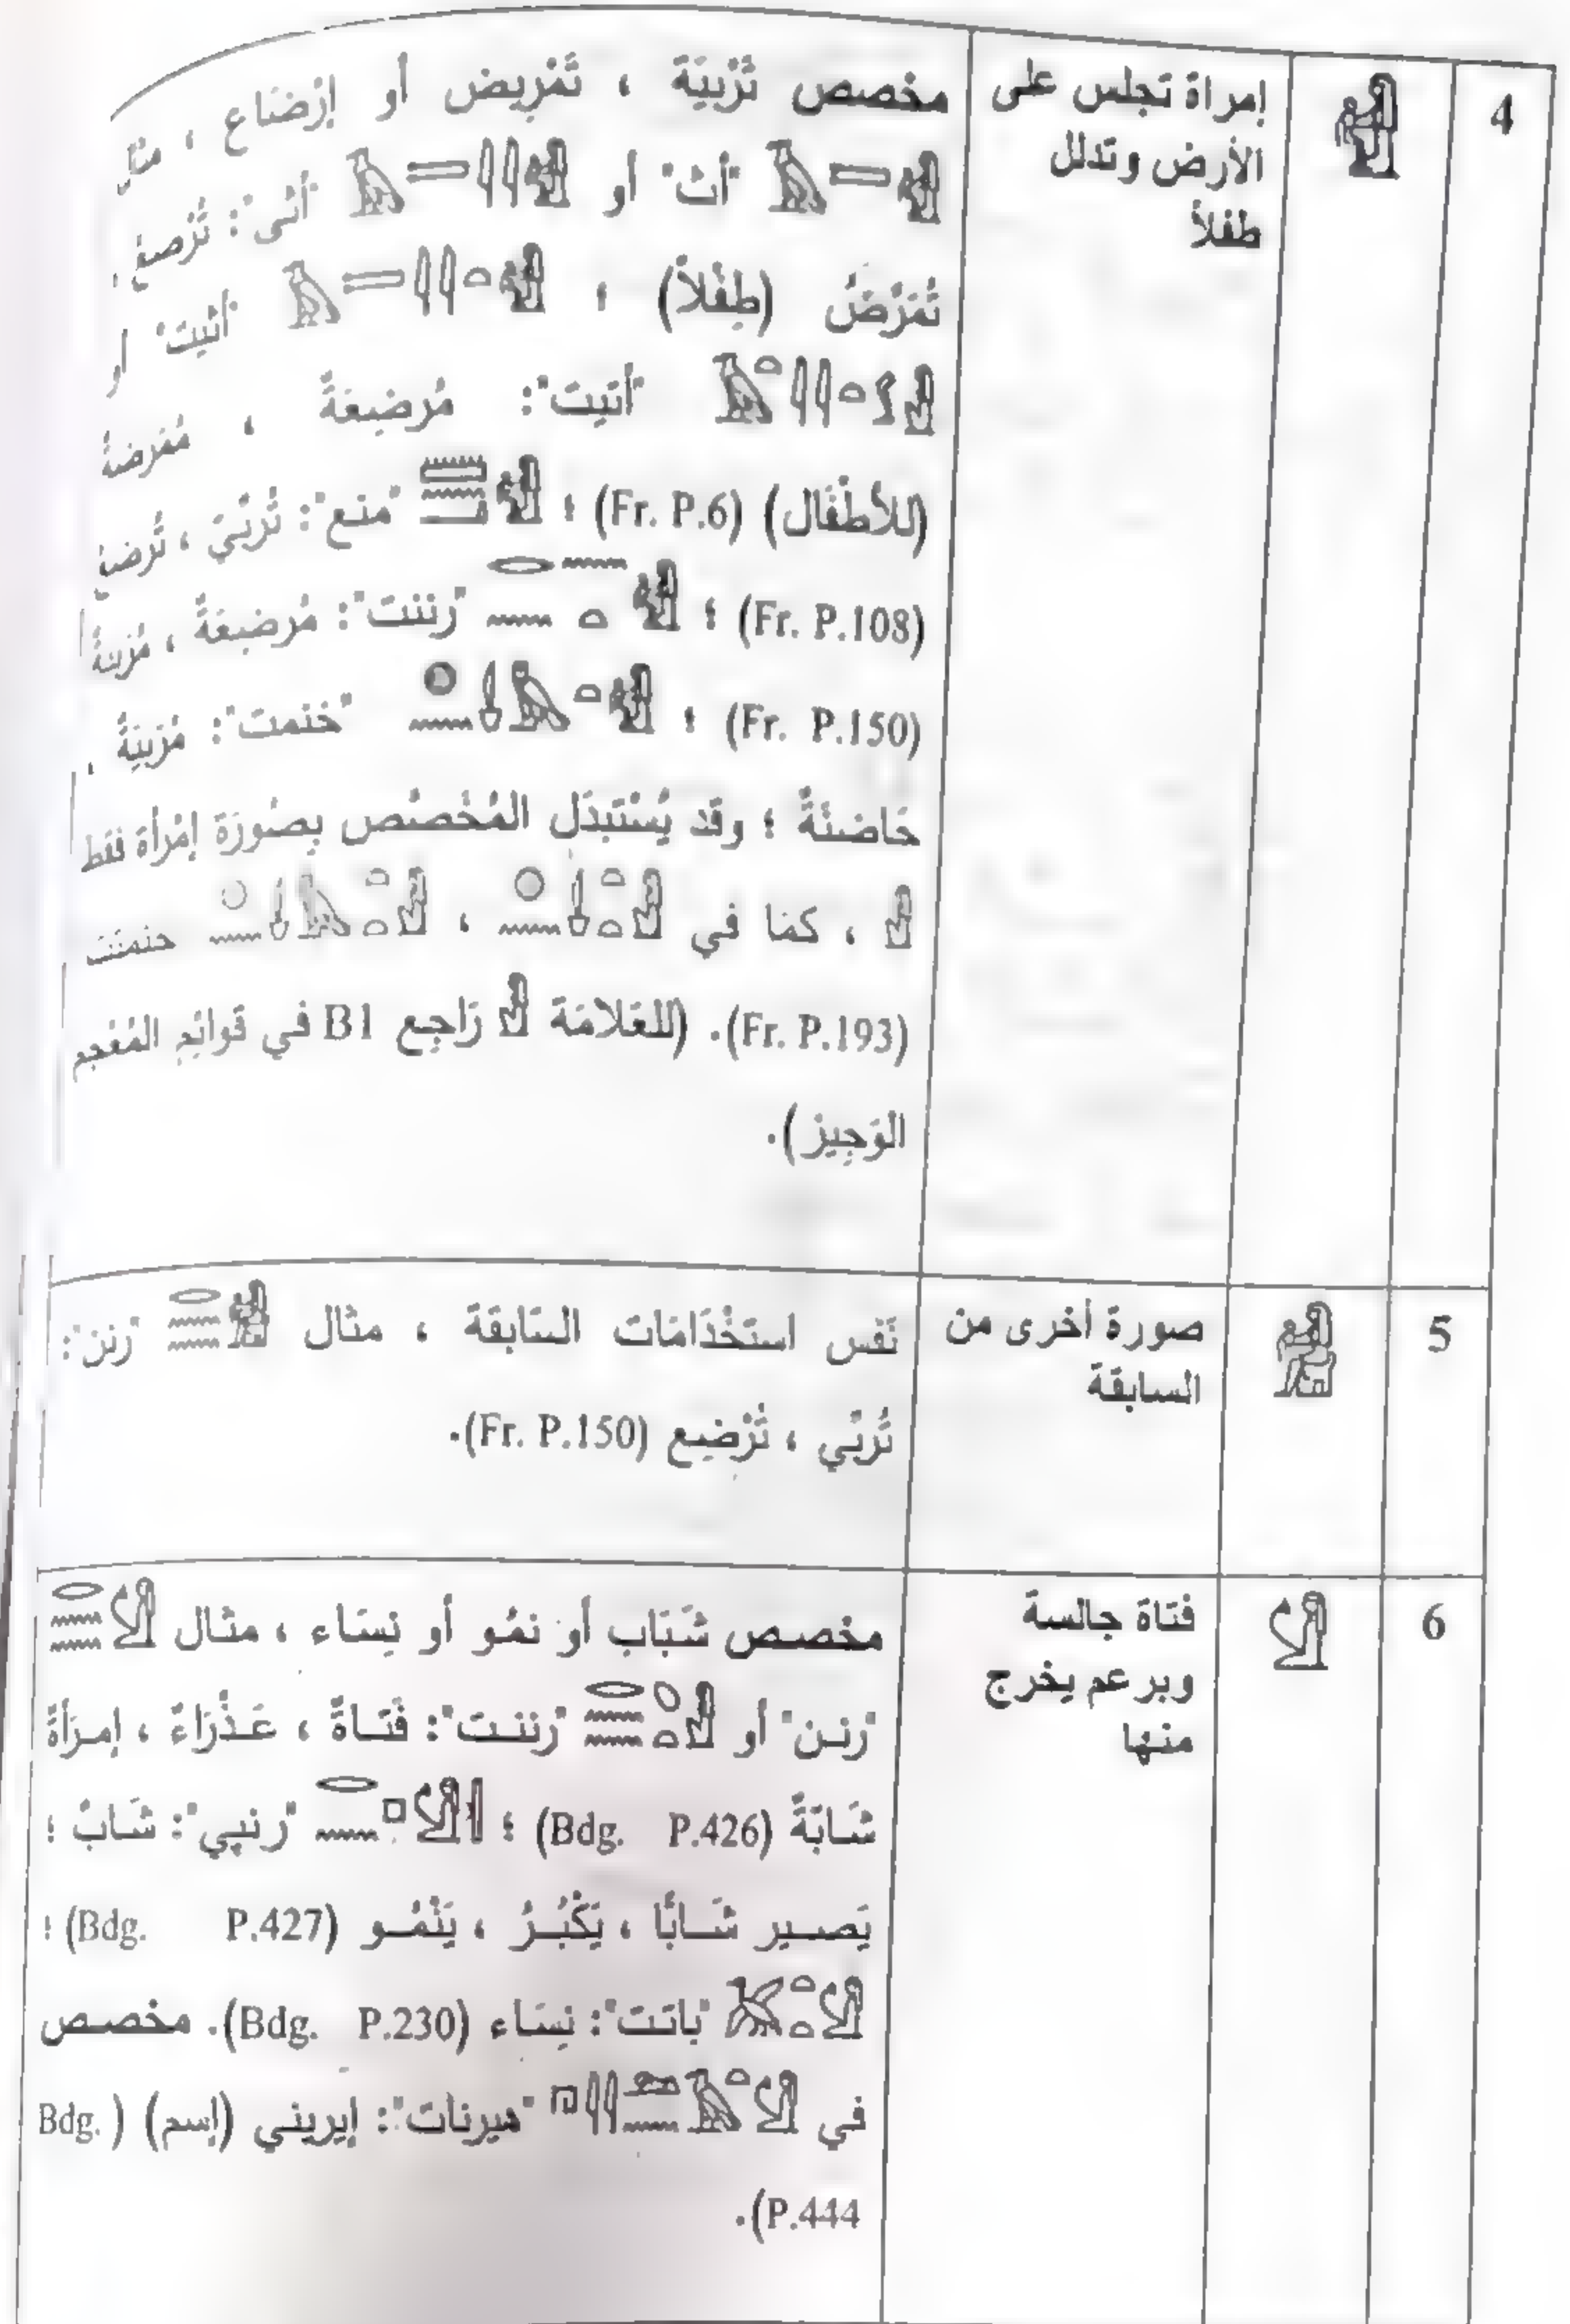 4
إمرأة تجلس على
الأرض وتدلل
طفلاً
مخصص تَرْبيَة ، تَمْرِيض أو إرْضَاع ، مثال
"أث" أو "أثى": تُرْضِع ،
تُمَرِّضُ (طِفْلاً) ؛ "أثيت" أو
"أتيت": مُرضِعَةً ، مُمَرضةُ
(للأطْفَال) (Fr. P.6) ؛ "منع": تُربِّيَ ، تُرضِعُ
(Fr. P.108) ؛ "رننت": مُرضِعَةً ، مُرَبيةً
(Fr. P.150) ؛ "خنمت": مُرَبيَةً ،
حَاضنَةً ؛ وقد يُسْتَبدَل المُخَصَّص بِصُورَة إمْرأة فقط
، كمَا في ، خنمتت
(Fr. P.193). (للعَلامَة رَاجِع B1 في قَوائِم المُعْجم
الوَجِيز).
5
صورة أخرى من
السابقة
نَفس استخْدَامَات السَّابقة ، مثال "رنن":
تُربِّي ، تُرْضِع (Fr. P.150).
6
فتاة جالسة
وبرعم يخرج
منها
مخصص شَبَاب أو نمُو أو نِسَاء ، مثال
"رنن" أو "رننت": فَتَاةً ، عَذْرَاءً ، إمرَأةً
شَابَّةً (Bdg. P.426) ؛ "رنپي": شَابٌ ؛
يَصير شَابًا ، يَكْبُرُ ، يَنْمُو (Bdg. P.427) ؛
"باتت": نِسَاء (Bdg. P.230). مخصص
في "هيرنات": إيريني (إسم) (Bdg.
P.444).